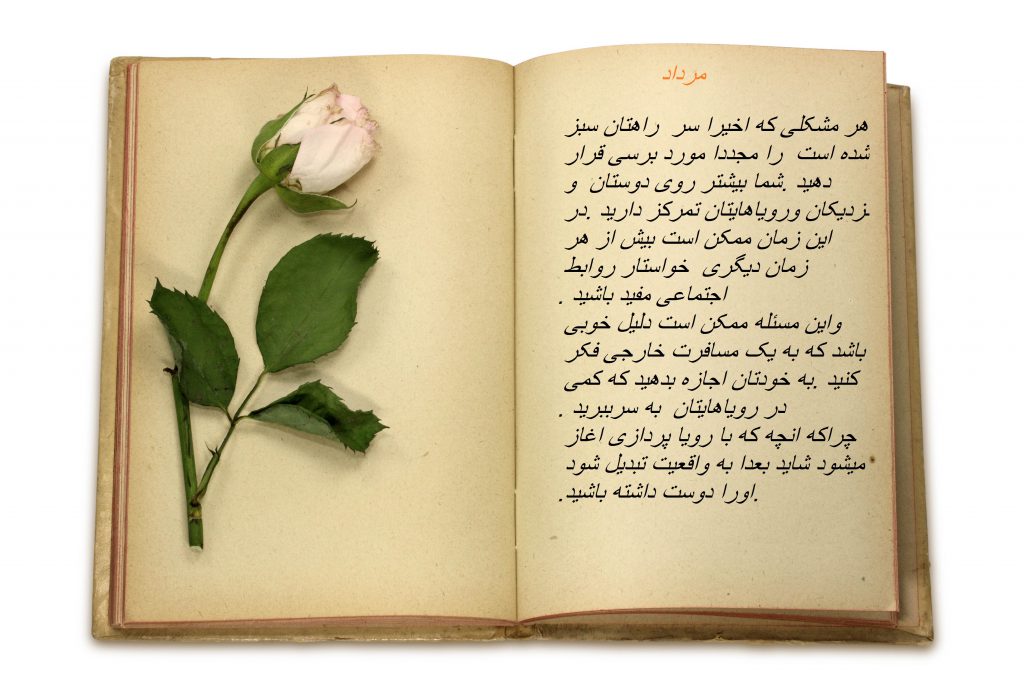 مرداد
هر مشکلی که اخیرا سر راهتان سبز
شده است را مجددا مورد برسی قرار
دهید .شما بیشتر روی دوستان و
نزدیکان ورویاهایتان تمرکز دارید .در
این زمان ممکن است بیش از هر
زمان دیگری خواستار روابط
اجتماعی مفید باشید .
واین مسئله ممکن است دلیل خوبی
باشد که به یک مسافرت خارجی فکر
کنید .به خودتان اجازه بدهید که کمی
در رویاهایتان به سرببرید .
چراکه انچه که با رویا پردازی اغاز
میشود شاید بعدا به واقعیت تبدیل شود
.اورا دوست داشته باشید.